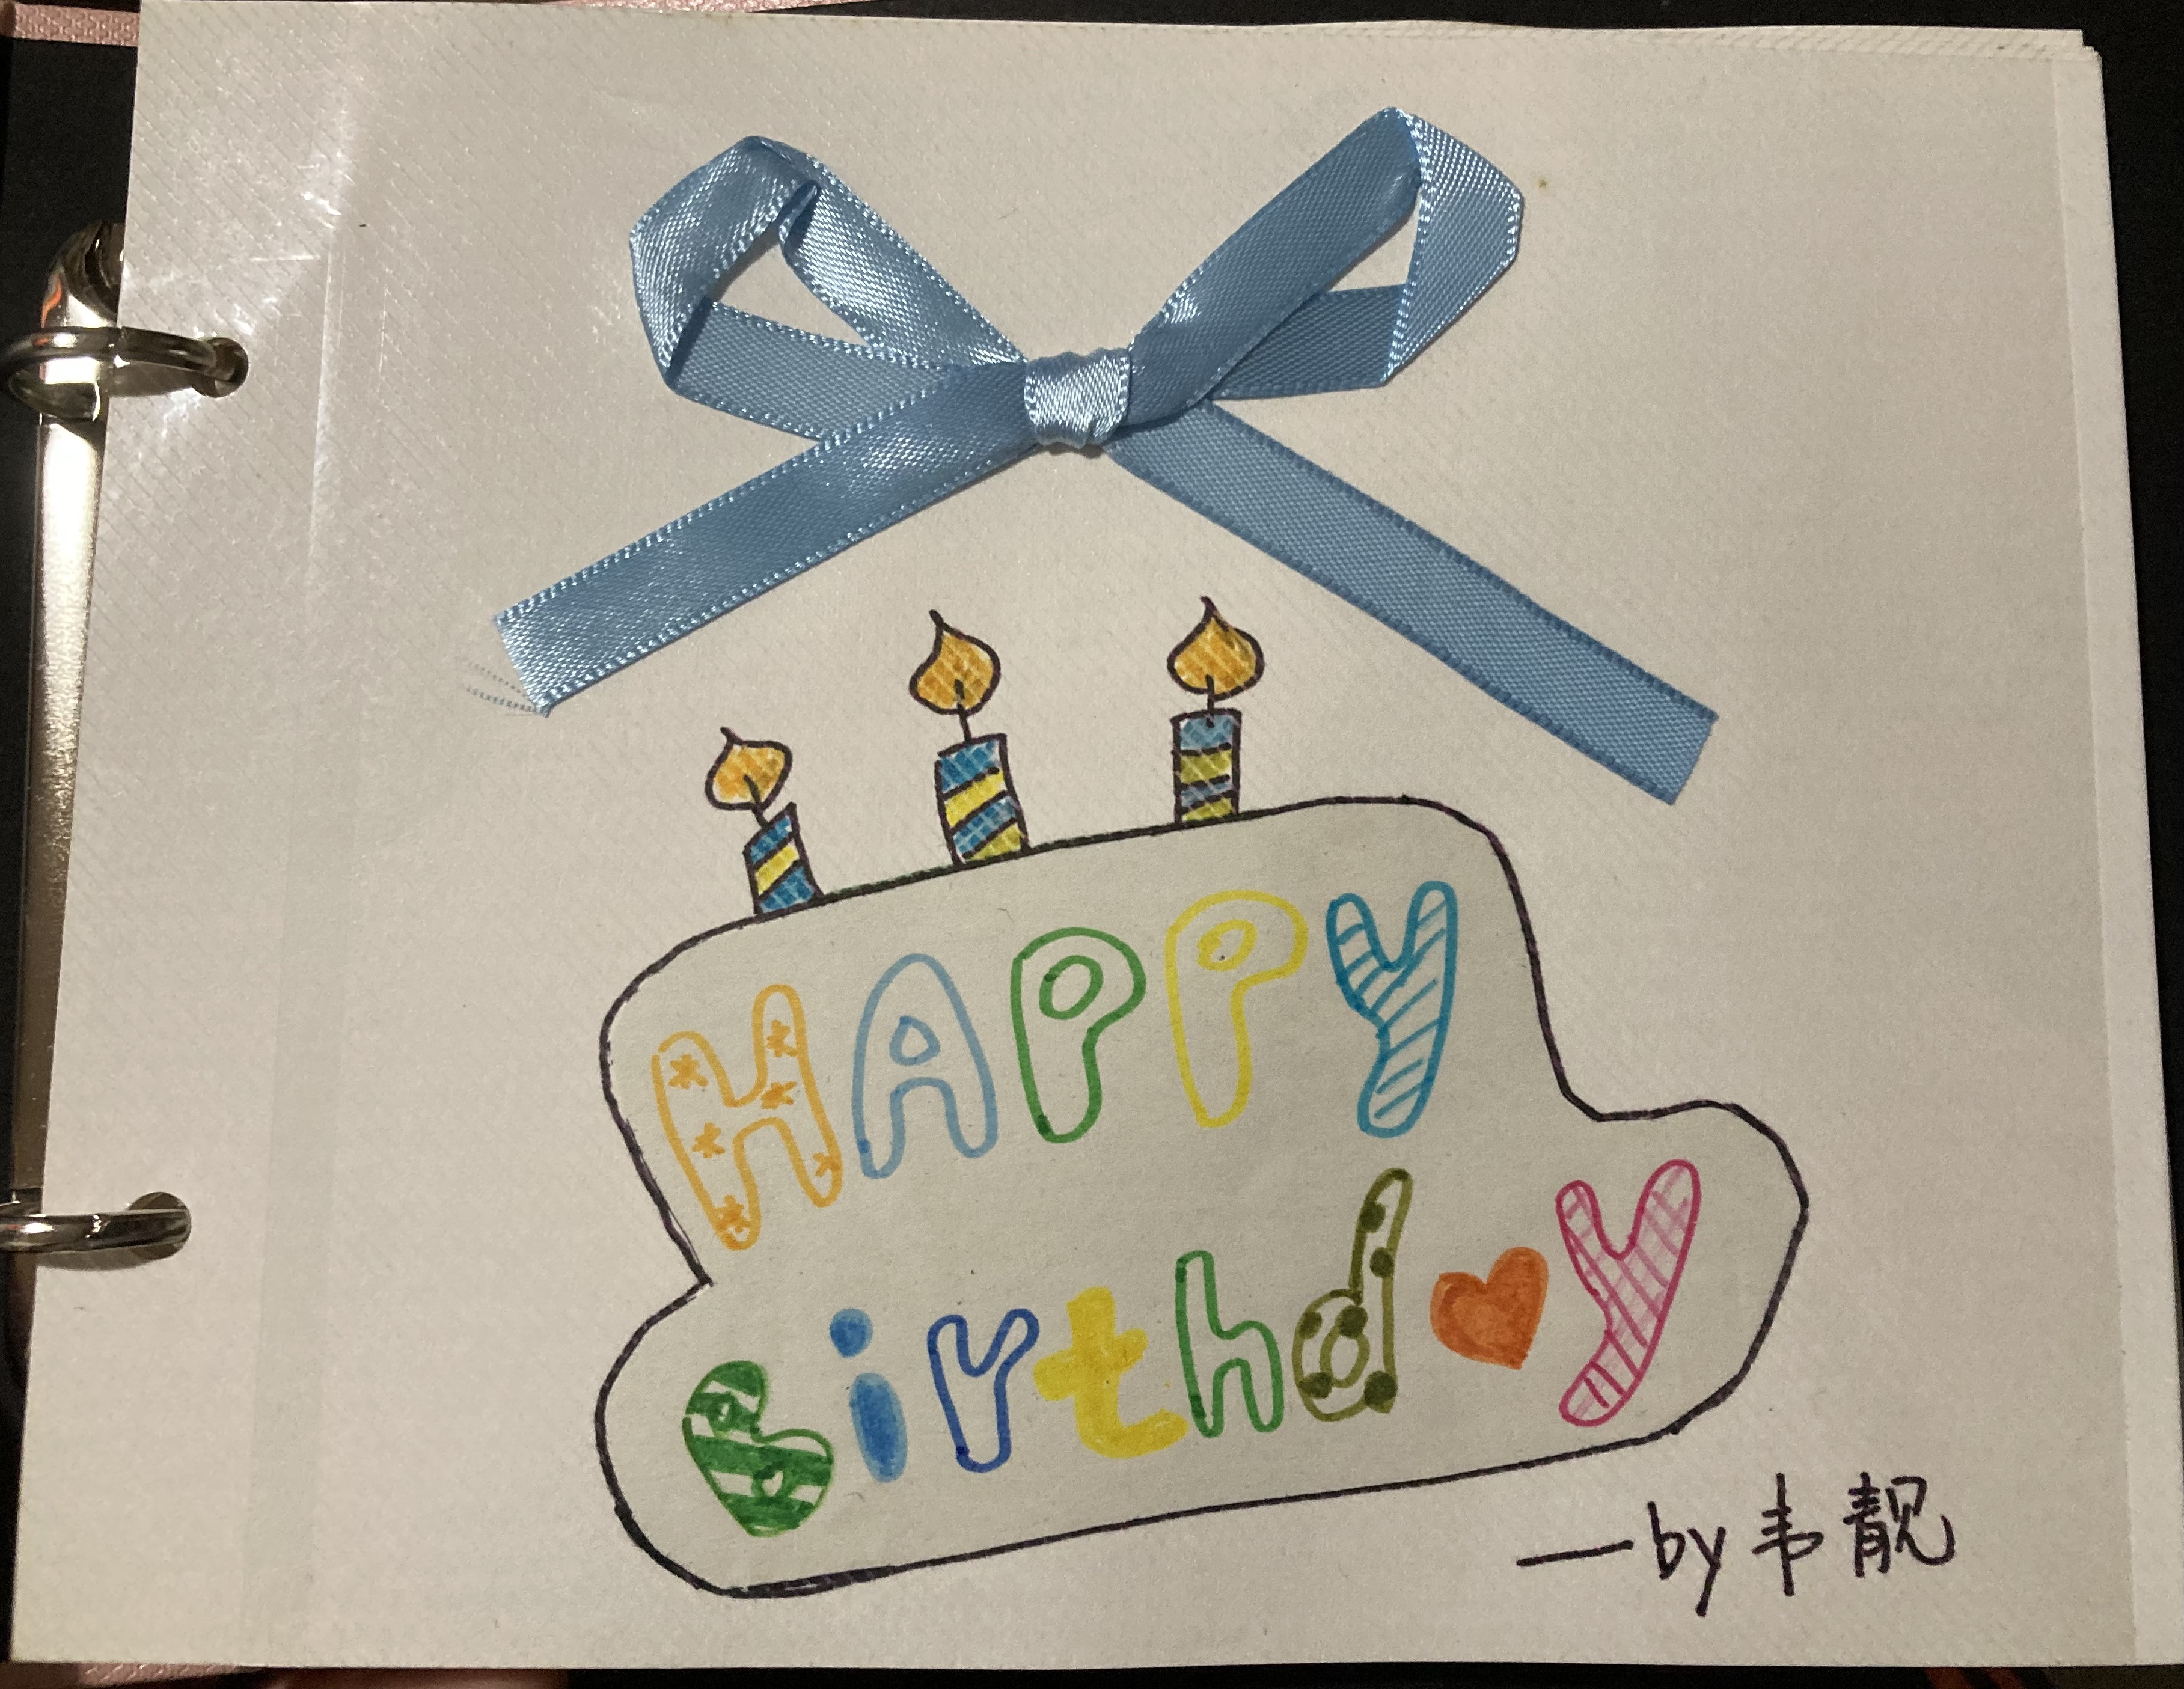 HAPPY
Birthd♥y
—by 韦靓